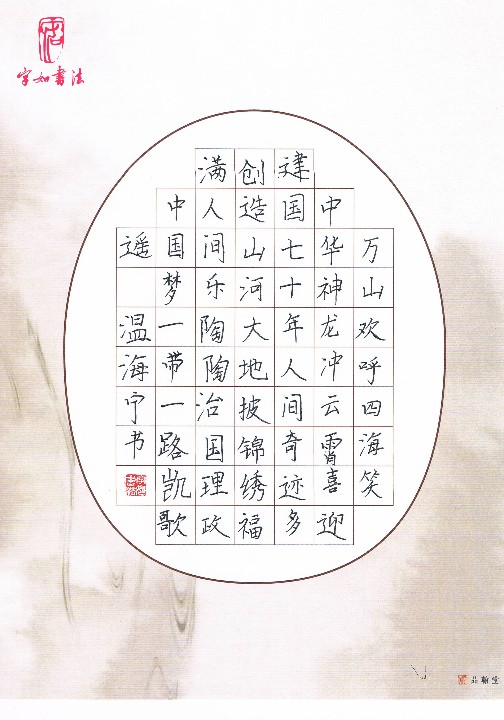 字如书法
万山欢呼四海笑
中华神龙冲云霄喜迎
建国七十年人间奇迹多
创造山河大地披锦绣福
满人间乐陶陶治国理政
中国梦一带一路凯歌
遥
温海宁书
品翰堂